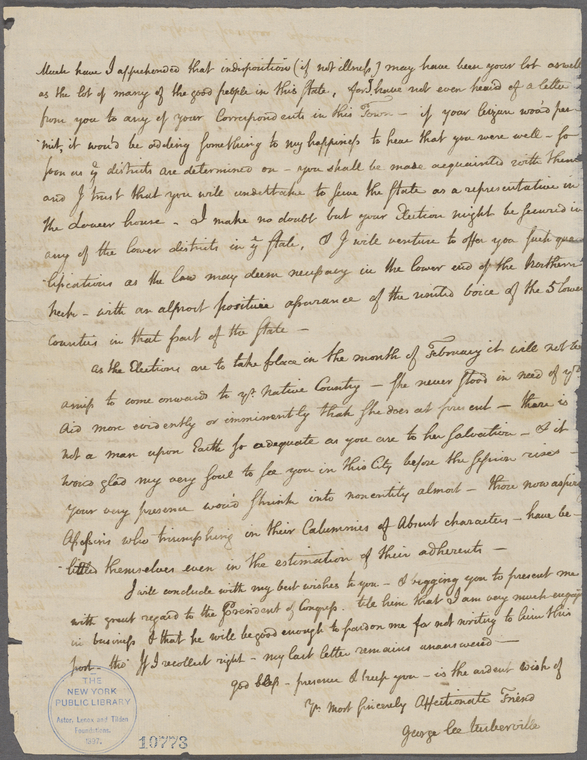 Much have I apprehended that indisposition (if not illness) may have been your lot as well
as the lot of many of the good people in this State, for I have not even heard of a letter
from you to any of your Correspondents in this Town - if your leizure wou'd per-
mit, it wou'd be adding something to my happiness to hear that you were well - so
soon as ye districts are determined on - you shall be made acquainted with them
and I trust that you will undertake to serve the State as a representative in
the Lower house - I make no doubt but your Election might be secured in
any of the lower districts in ye State, & I will venture to offer you such qua-
lifications as the law may deem necessary in the lower end of the Northern
Neck - with an almost positive assurance of the united voice of the 5 lower
Counties in that part of the State -
As the Elections are to take place in the month of February it will not be
amiss to come onward to yr Native Country - She never stood in need of yr
Aid more evidently or imminently than she does at present - there is
not a man upon Earth so adequate as you are to her salvation - & it
wou'd glad my very soul to see you in this City before the session rises -
Your very presence wou'd shrink into nonentity almost - those now aspiring
Assassins who triumphing in their Calumnies of Absent characters - have be-
-littled themselves even in the estimation of their adherents -
I will conclude with my best wishes to you - & begging you to present me
with great regard to the President of Congress. tele him that I am very much engag'd
in business & that he will be good enough to pardon me for not writing to him this
post - tho' If I recollect right - my last letter remains unanswered -
God bless - preserve & keep you - is the ardent wish of
Yr. most sincerely Affectionate Friend
George Lee Turberville
THE
NEW YORK
PUBLIC LIBRARY
Astor, Lenox and Tilden
Foundations.
1897.
10773